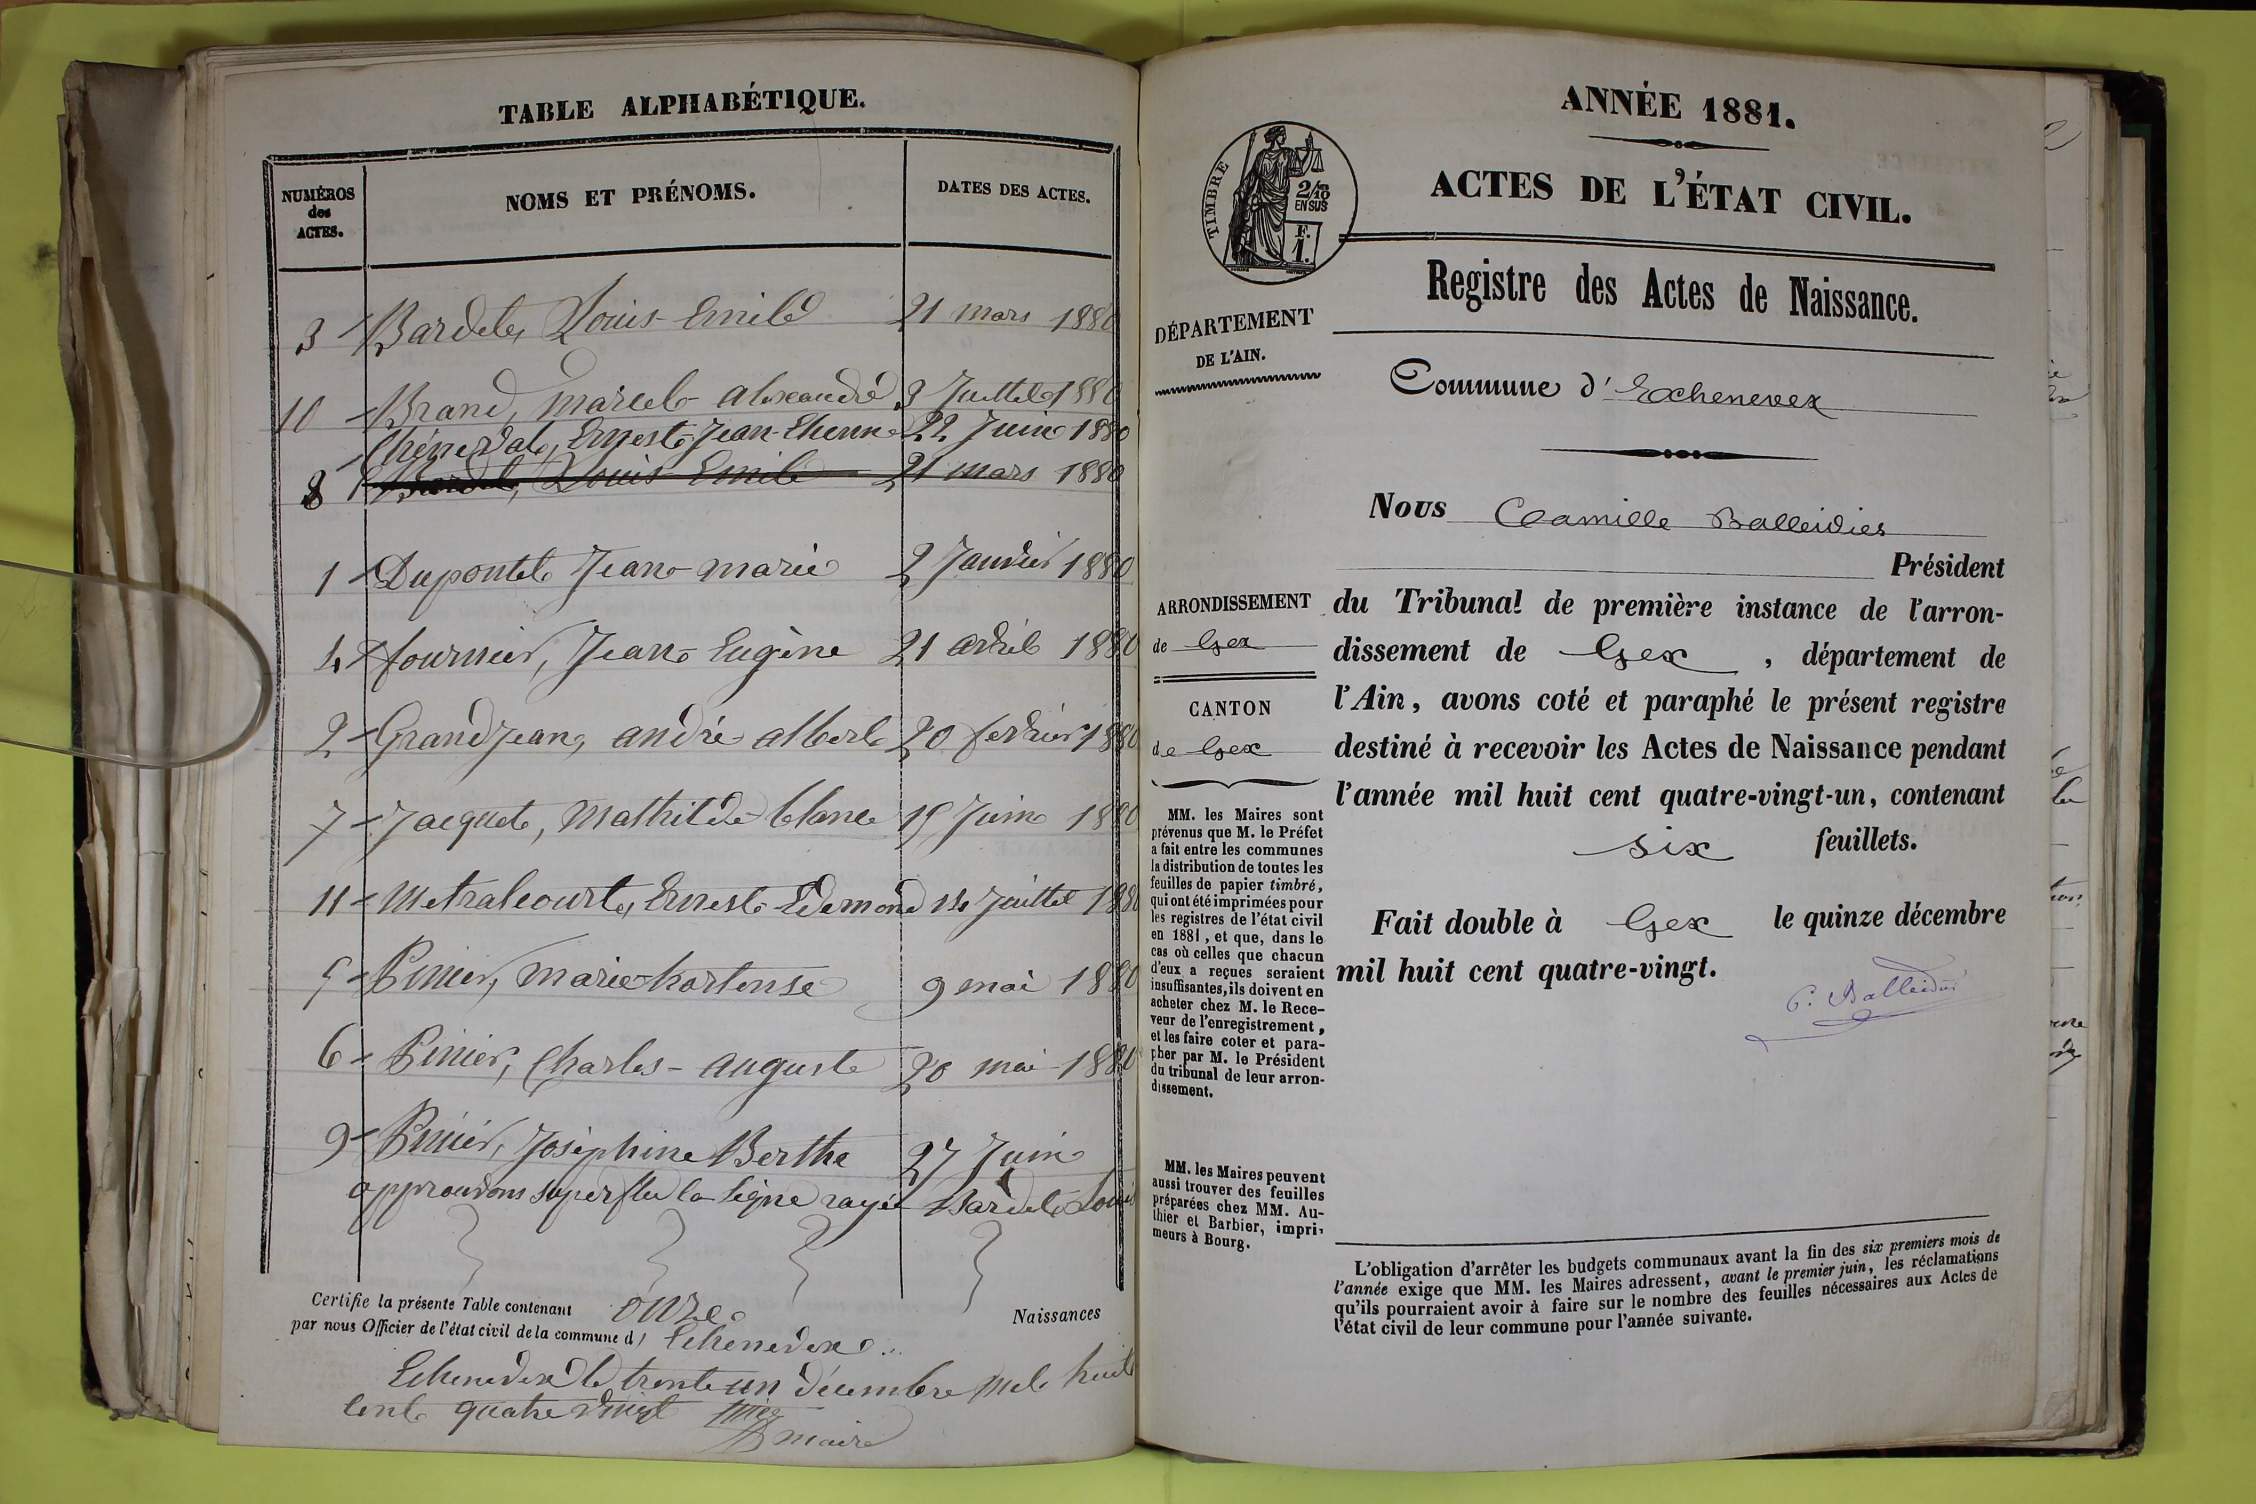 TABLE ALPHABÉTIQUE.
NUMÉROS
des
ACTES.
NOMS ET PRÉNOMS.
DATES DES ACTES.
3 Bardet, Louis Emile 21 mars 1880
10 Brand, marcel alexandre 3 Juillet 1880
Chêneval, Ernest Jean Etienne 22 Juin 1880
8 Bardet, Louis Emile 21 mars 1880
1 Dupontet Jean marie 2 Janvier 1880
4 fournier, Jean Eugène 21 avril 1880
2 Grandjean, andré albert 20 fevrier 1880
7 Jacquet, Mathilde blanc 15 Juin 1880
11 Metralcourt, Ernest Edemond 14 Juillet 1880
5 Pinier, marie hortense 9 mai 1880
6 Pinier, Charles-auguste 20 mai 1880
9 Pinier, Joséphine Berthe 27 Juin
approuvons superflu la ligne rayée Bardet Louis
Certifie la présente Table contenant onze Naissances
par nous Officier de l'état civil de la commune d' Echenevex
Echenevex le trente un décembre mil huit
cent quatre vingt
maire
ANNÉE 1881.
ACTES DE L'ÉTAT CIVIL.
TIMBRE
2/10
EN SUS
F.
1.
Registre des Actes de Naissance.
DÉPARTEMENT
DE L'AIN.
Commune d' Echenevex
Nous Camille Balleidier
Président
du Tribunal de première instance de l'arron-
dissement de Gex, département de
l'Ain, avons coté et paraphé le présent registre
destiné à recevoir les Actes de Naissance pendant
l'année mil huit cent quatre-vingt-un, contenant
six feuillets.
Fait double à Gex le quinze décembre
mil huit cent quatre-vingt.
C. Balleidier
ARRONDISSEMENT
de Gex
CANTON
de Gex
MM. les Maires sont
prévenus que M. le Préfet
a fait entre les communes
la distribution de toutes les
feuilles de papier timbré,
qui ont été imprimées pour
les registres de l'état civil
en 1881, et que, dans le
cas où celles que chacun
d'eux a reçues seraient
insuffisantes, ils doivent en
acheter chez M. le Rece-
veur de l'enregistrement,
et les faire coter et para-
pher par M. le Président
du tribunal de leur arron-
dissement.
MM. les Maires peuvent
aussi trouver des feuilles
préparées chez MM. Au-
thier et Barbier, impri-
meurs à Bourg.
L'obligation d'arrêter les budgets communaux avant la fin des six premiers mois de
l'année exige que MM. les Maires adressent, avant le premier juin, les réclamations
qu'ils pourraient avoir à faire sur le nombre des feuilles nécessaires aux Actes de
l'état civil de leur commune pour l'année suivante.